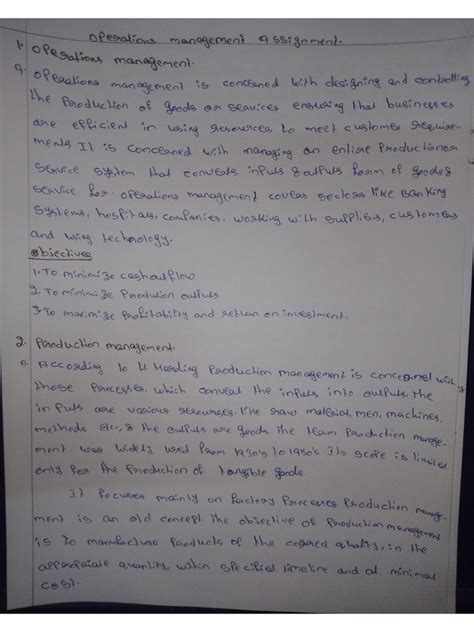 Operations management Assignment.
1. Operations management.
A. Operations management is conceaned with designing and controlling
the Production of goods or services ensuring that businesses
are efficient in using resources to meet customer require-
ments. It is conceaned with managing an entire Production or
Service system that converts inputs & outputs form of goods &
service for. Operations management covers sectors like Banking
Systems, hospitals, companies. working with supplies, customers
and using technology.
Objectives
1. To minimize cash outflow
2. To minimize Prodution outputs
3. To maximize Profitability and return on investment.
2. Production management.
A. According to H Harding Production management is concerned with
those Processes. which conveat the inputs into outputs. The
inputs are various resources. like raw material, men, machines.
methods etc., & the outputs are goods. The team Production manage-
ment was widely used from 1930's to 1950's. Its scope is limited
only for the Production of tangible goods.
It focuses mainly on factory Processes Production manag-
ment is an old concept. The objective of Production management
is to manufacture Products of the quality, in the
appropriate quantity, within specified timeline and at minimal
cost.